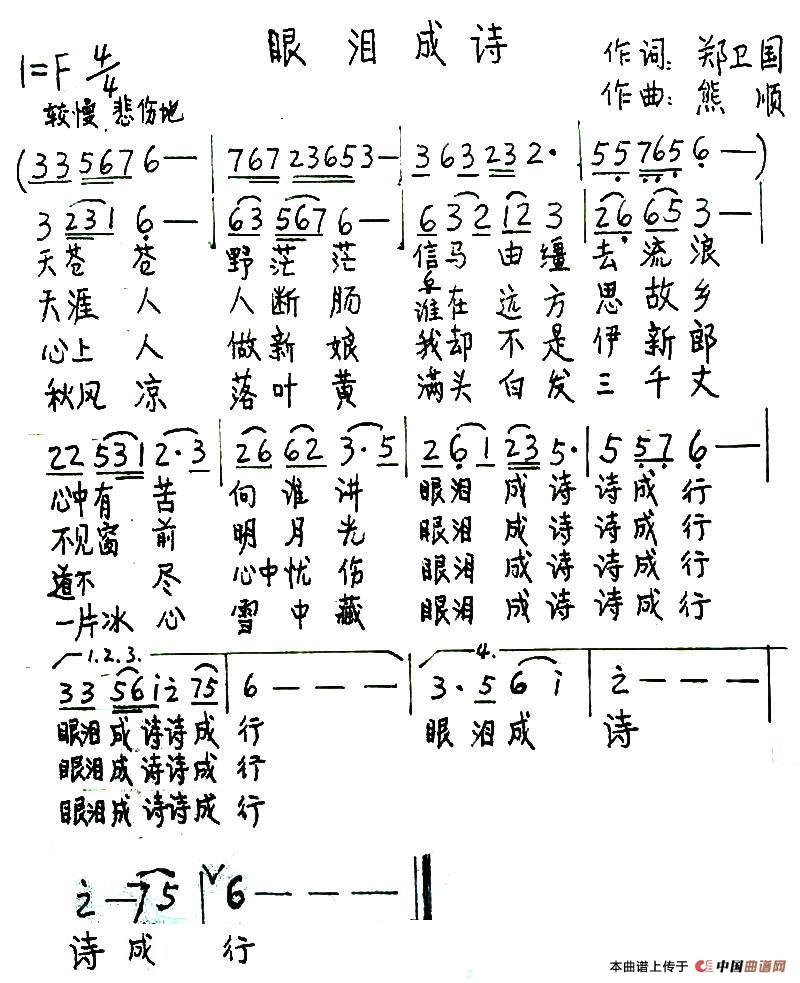 眼泪成诗
1=F 4/4
作词:郑卫国
较慢 悲伤地
作曲:熊顺
(33 5676— | 767 23653— | 363 232· | 55 7656——)
3 2316— | 63 5676— | 632 123 | 26 653—
天苍苍 野茫茫 信马由缰去流浪
天涯人 人断肠 谁在远方思故乡
心上人 做新娘 我却不是伊新郎
秋风凉 落叶黄 满头白发三千丈
22 5312·3 | 26 623·5 | 261 235· | 5 576——
心中有苦 向谁讲 眼泪成诗诗成行
不见窗前 明月光 眼泪成诗诗成行
道不尽 心中忧伤 眼泪成诗诗成行
一片冰心 雪中藏 眼泪成诗诗成行
1.2.3. 4.
33 56i 2 75 | 6——— | 3·56i | 2———
眼泪成诗诗成行 眼泪成诗
眼泪成诗诗成行
眼泪成诗诗成行
2—75 | V6————
诗成行
本曲谱上传于 中国曲谱网